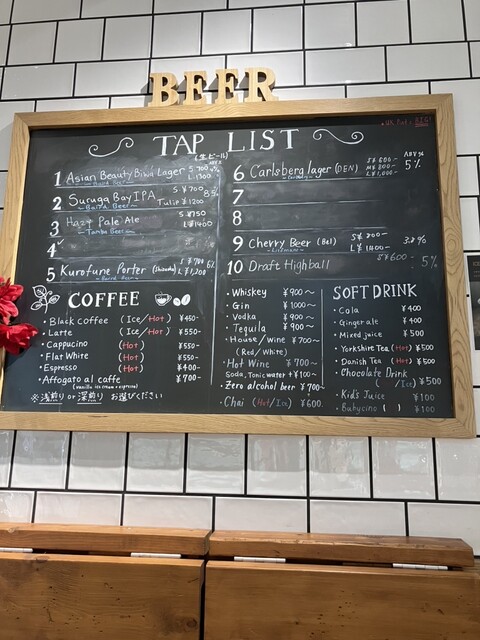 BEER
TAP LIST
(生ビール)
1 Asian Beauty Biwa Lager S 700
L 1300
~ Baird Beer ~
2 Suruga Bay IPA S ¥700
Tulip ¥1200
~ Baird Beer ~
3 Hazy Pale Ale S ¥750
L ¥1400
4
5 Kurofune Porter (Shizuoka) S ¥700 6%
L ¥1,200
~ Baird Beer ~
6 Carlsberg lager (DEN) S ¥600- ABV% 5%
M ¥800-
L ¥1,000-
~ Carlsberg ~
7
8
9 Cherry Beer (Bel) S ¥800-
L ¥1400-
~ Liefmans ~
10 Draft Highball ¥600- 5%
COFFEE
・Black coffee (Ice/Hot) ¥450-
・Latte (Ice/Hot) ¥550-
・Cappucino (Hot) ¥550-
・Flat White (Hot) ¥550-
・Espresso (Hot) ¥400-
・Affogato al caffe ¥700-
(vanilla ice cream + espresso)
※浅煎り or 深煎り お選びください
・Whiskey ¥900~
・Gin ¥1000~
・Vodka ¥900~
・Tequila ¥900~
・House/wine ¥700~
(Red/White)
・Hot Wine ¥700~
Soda, Tonic water +¥100~
・Zero alcohol beer ¥700~
・Chai (Hot/Ice) ¥600
SOFT DRINK
・Cola ¥400
・Ginger ale ¥400
・Mixed juice ¥500
・Yorkshire Tea (Hot) ¥500
・Danish Tea (Hot) ¥500
・Chocolate Drink
(Hot/Ice) ¥500
・Kid's Juice ¥100
・Babycino ( ) ¥100